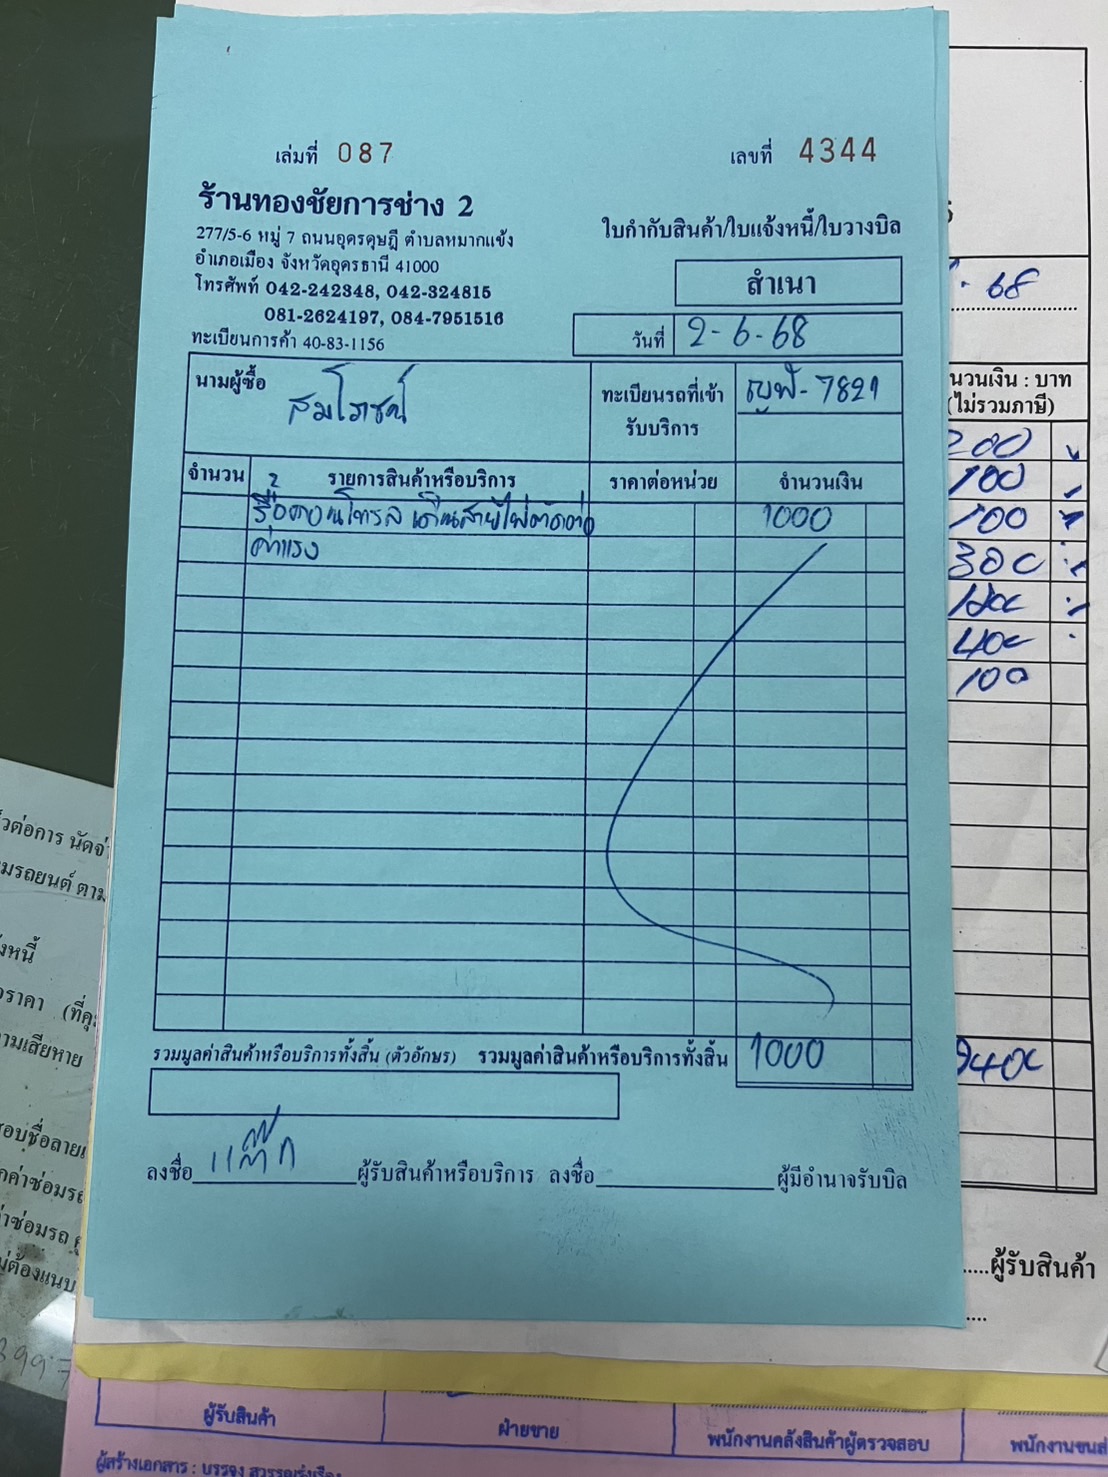 เล่มที่ 087
เลขที่ 4344
ร้านทองชัยการช่าง 2
277/5-6 หมู่ 7 ถนนอุดรดุษฎี ตำบลหมากแข้ง
อำเภอเมือง จังหวัดอุดรธานี 41000
โทรศัพท์ 042-242348, 042-324815
081-2624197, 084-7951516
ทะเบียนการค้า 40-83-1156
ใบกำกับสินค้า/ใบแจ้งหนี้/ใบวางบิล
สำเนา
วันที่ 2-6-68
นามผู้ซื้อ
สมโภชน์
ทะเบียนรถที่เข้ารับบริการ
7821
จำนวน รายการสินค้าหรือบริการ ราคาต่อหน่วย จำนวนเงิน
รื้อคอนโทรล เดินสายไฟตัดต่อ 1000
ค่าแรง
รวมมูลค่าสินค้าหรือบริการทั้งสิ้น (ตัวอักษร) รวมมูลค่าสินค้าหรือบริการทั้งสิ้น 1000
ลงชื่อ ผู้รับสินค้าหรือบริการ ลงชื่อ ผู้มีอำนาจรับบิล
68
จำนวนเงิน : บาท
(ไม่รวมภาษี)
200
100
100
300
400
100
ผู้รับสินค้า
วต่อการ นัดจ่
มรถยนต์ ตาม
งหนี้
ราคา (ที่คุ
ามเสียหาย
อบชื่อลาย
กค่าซ่อมรถ
่าซ่อมรถ
ม่ต้องแนบ
ผู้รับสินค้า
ฝ่ายขาย
พนักงานคลังสินค้าผู้ตรวจสอบ
พนักงานขนส่
ผู้สร้างเอกสาร : บรรจง สุวรรณรุ่งเรือง